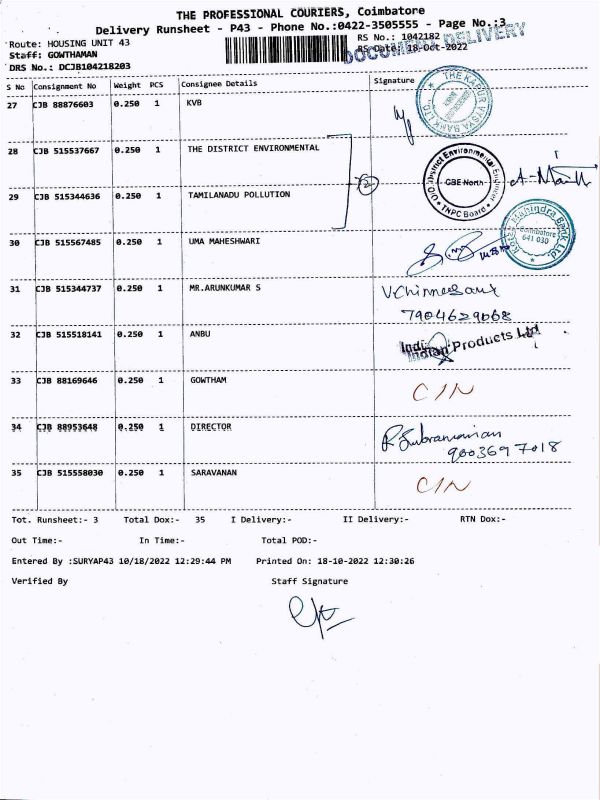 THE PROFESSIONAL COURIERS, Coimbatore
Delivery Runsheet - P43 - Phone No.:0422-3505555 - Page No.:3
Route: HOUSING UNIT 43
RS No.: 1042182
DOCUMENT DELIVERY
Staff: GOWTHAMAN
RS Date: 18-Oct-2022
DRS No.: DCJB104218203
S No Consignment No Weight PCS Consignee Details Signature
27 CJB 88876603 0.250 1 KVB
THE KARUR VYSYA BANK LTD.
28 CJB 515537667 0.250 1 THE DISTRICT ENVIRONMENTAL
O/O District Environmental Engineer
CBE North
TNPC Board
2
29 CJB 515344636 0.250 1 TAMILANADU POLLUTION
30 CJB 515567485 0.250 1 UMA MAHESHWARI
Kotak Mahindra Bank Ltd.
Coimbatore
641 030
31 CJB 515344737 0.250 1 MR.ARUNKUMAR S
7904629668
32 CJB 515518141 0.250 1 ANBU
Indian Products Ltd
33 CJB 88169646 0.250 1 GOWTHAM
C/N
34 CJB 88953648 0.250 1 DIRECTOR
R Subramanian
9003697018
35 CJB 515558030 0.250 1 SARAVANAN
C/N
Tot. Runsheet:- 3 Total Dox:- 35 I Delivery:- II Delivery:- RTN Dox:-
Out Time:- In Time:- Total POD:-
Entered By :SURYAP43 10/18/2022 12:29:44 PM Printed On: 18-10-2022 12:30:26
Verified By Staff Signature